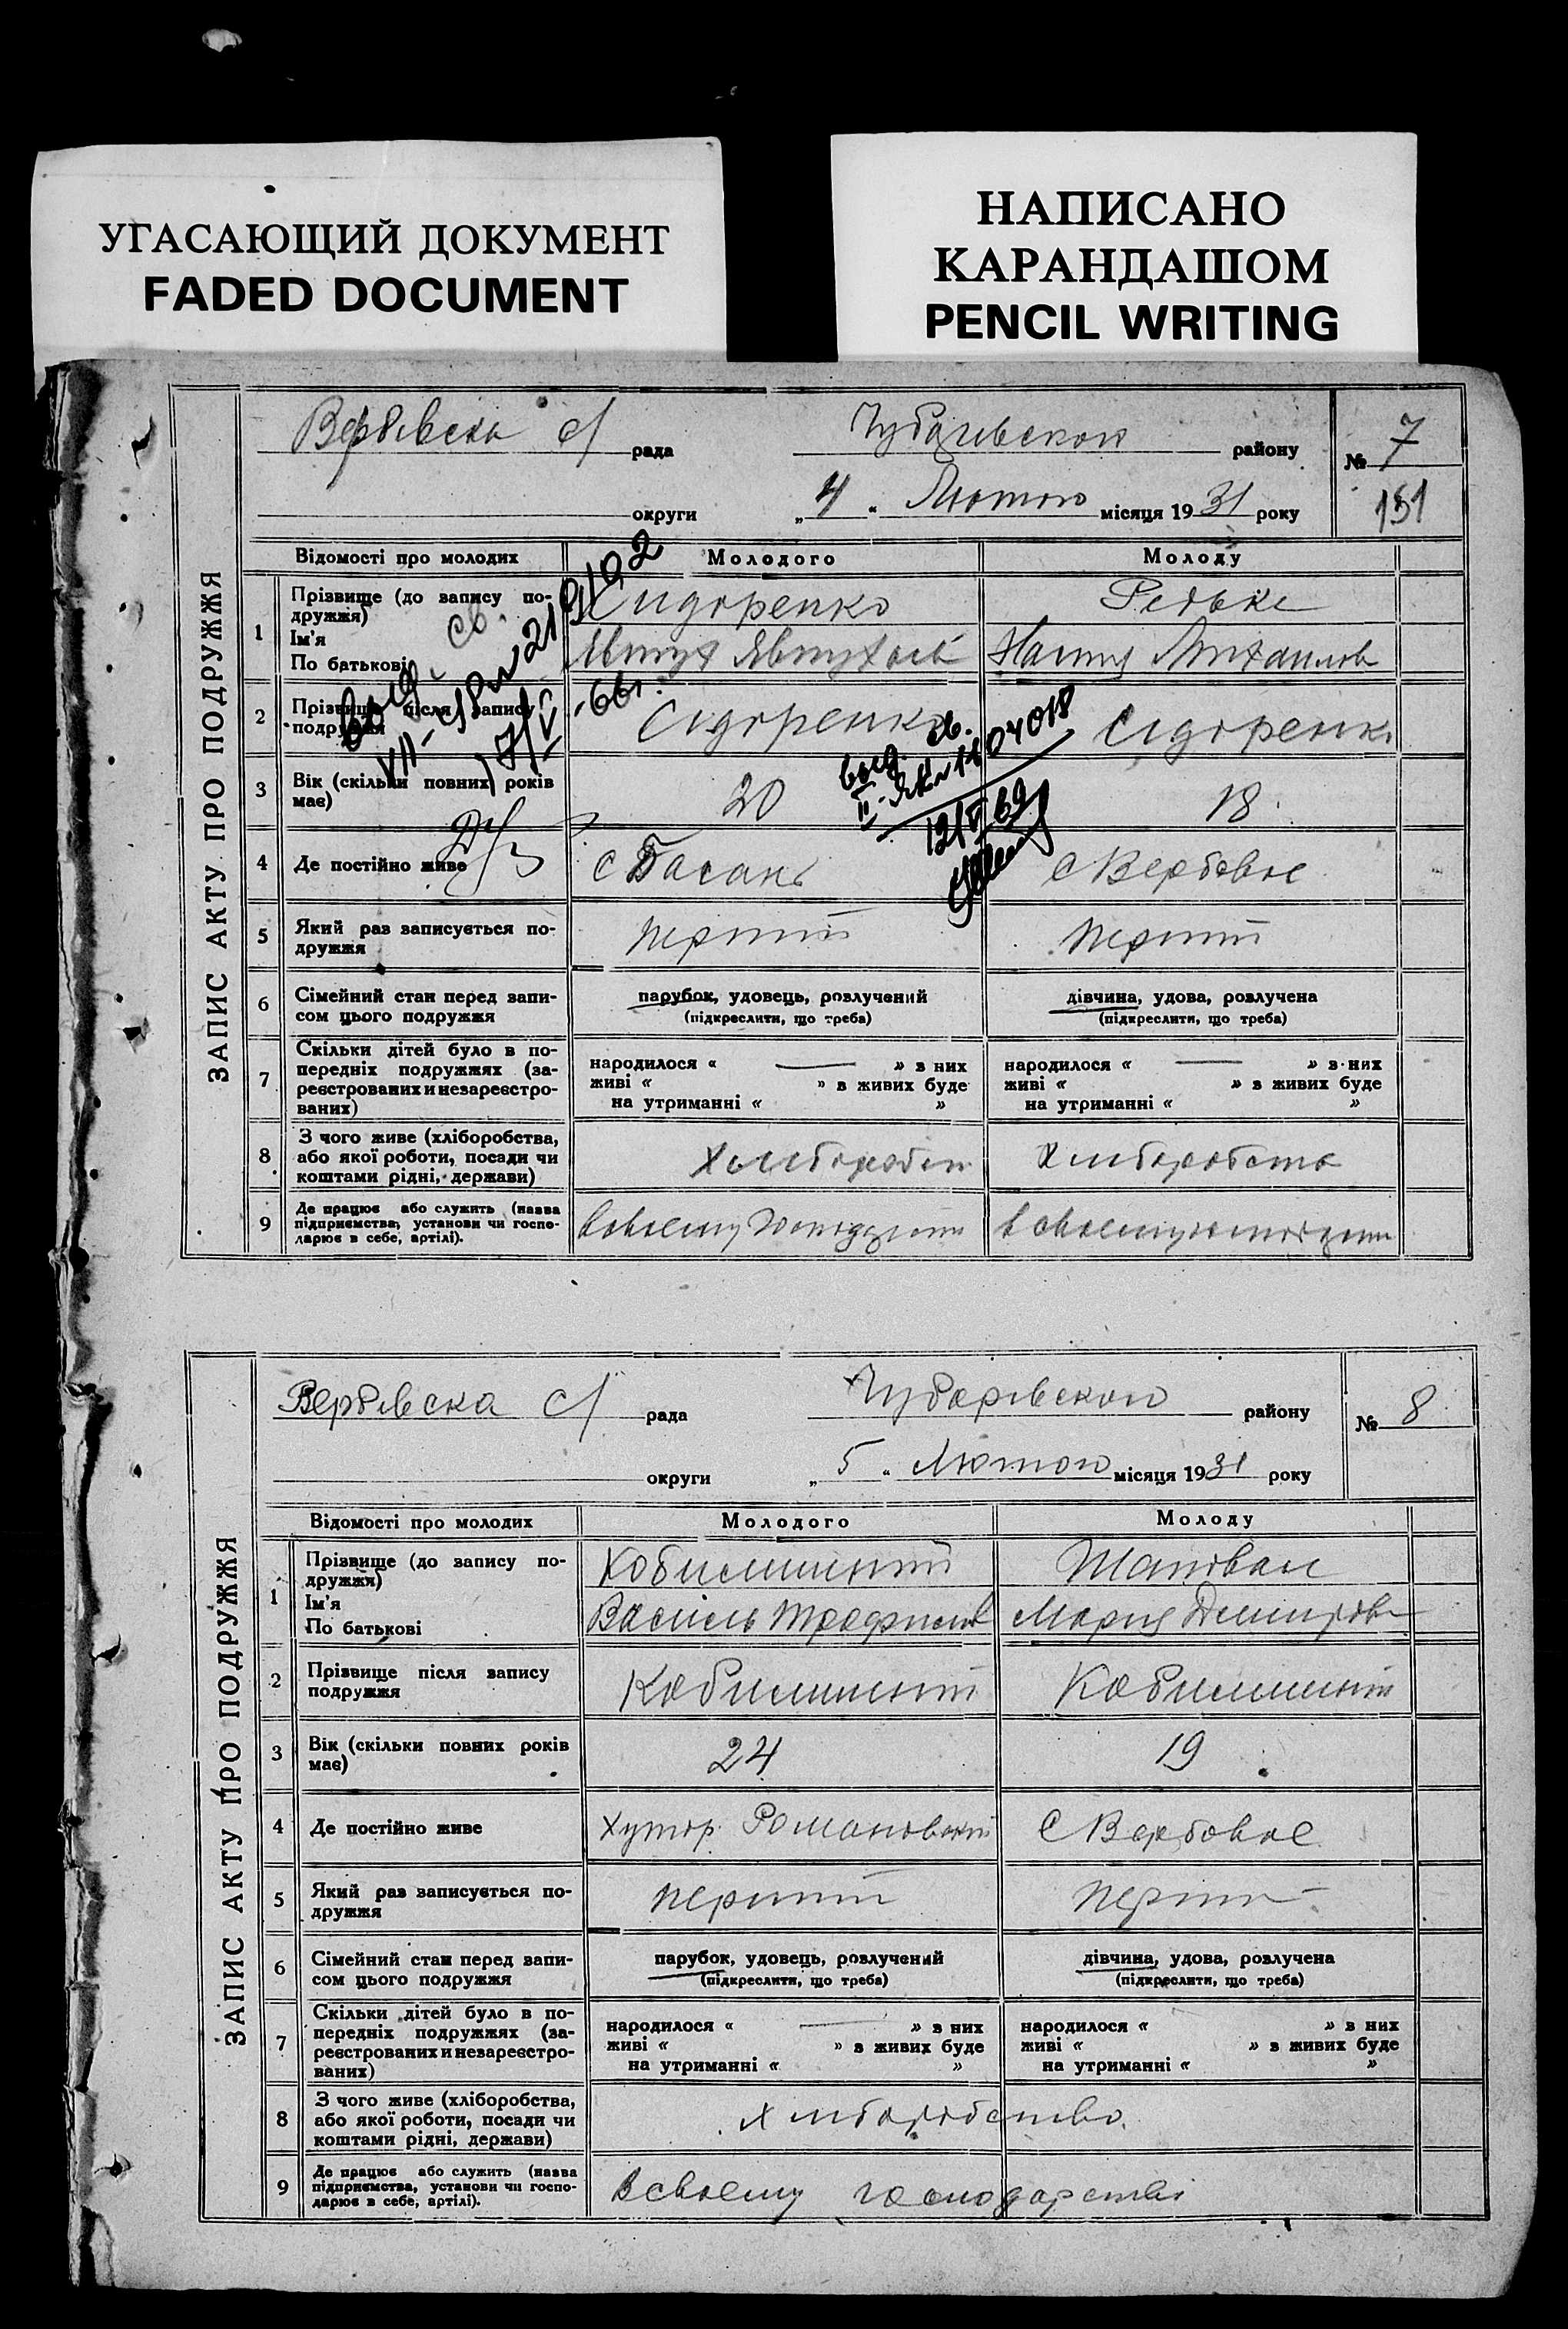 УГАСАЮЩИЙ ДОКУМЕНТ
FADED DOCUMENT
НАПИСАНО
КАРАНДАШОМ
PENCIL WRITING
ЗАПИС АКТУ ПРО ПОДРУЖЖЯ
Вербівська с/ рада Чубарівского району № 7
округи „4“ Лютого місяця 1931 року 151
Відомості про молодих Молодого Молоду
1 Прізвище (до запису по-
дружжя) Сидоренко Редьке
Ім'я
По батькові Явтух Явтухов
2 Прізвище після запису
подружжя Сидоренко Сидоренк
3 Вік (скільки повних років
має) 20 18
4 Де постійно живе с Басань с Вербовое
5 Який раз записується по-
дружжя перший перший
6 Сімейний стан перед запи-
сом цього подружжя
парубок, удовець, розлучений
(підкреслити, що треба)
дівчина, удова, розлучена
(підкреслити, що треба)
7 Скільки дітей було в по-
передніх подружжях (за-
реєстрованих и незареєстро-
ваних)
народилося « — » з них
живі « » в живих буде
на утриманні « »
народилося « — » з них
живі « » в живих буде
на утриманні « »
8 З чого живе (хліборобства,
або якої роботи, посади чи
коштами рідні, держави)
Хліборобств Хліборобств
9 Де працює або служить (назва
підприємства, установи чи госпо-
дарює в себе, артілі).
12/V 69
ЗАПИС АКТУ ПРО ПОДРУЖЖЯ
Вербівска с/ рада Чубарівского району № 8
округи „5“ Лютого місяця 1931 року
Відомості про молодих Молодого Молоду
1 Прізвище (до запису по-
дружжя) Шаповал
Ім'я
По батькові Василь Трофимов Мария Дмитров
2 Прізвище після запису
подружжя
3 Вік (скільки повних років
має) 24 19
4 Де постійно живе Хутор Романовский с Вербовое
5 Який раз записується по-
дружжя перший перший
6 Сімейний стан перед запи-
сом цього подружжя
парубок, удовець, розлучений
(підкреслити, що треба)
дівчина, удова, розлучена
(підкреслити, що треба)
7 Скільки дітей було в по-
передніх подружжях (за-
реєстрованих и незареєстро-
ваних)
народилося « — » з них
живі « » в живих буде
на утриманні « »
народилося « » з них
живі « » в живих буде
на утриманні « »
8 З чого живе (хліборобства,
або якої роботи, посади чи
коштами рідні, держави)
хліборобство
9 Де працює або служить (назва
підприємства, установи чи госпо-
дарює в себе, артілі).
В своему господарстві